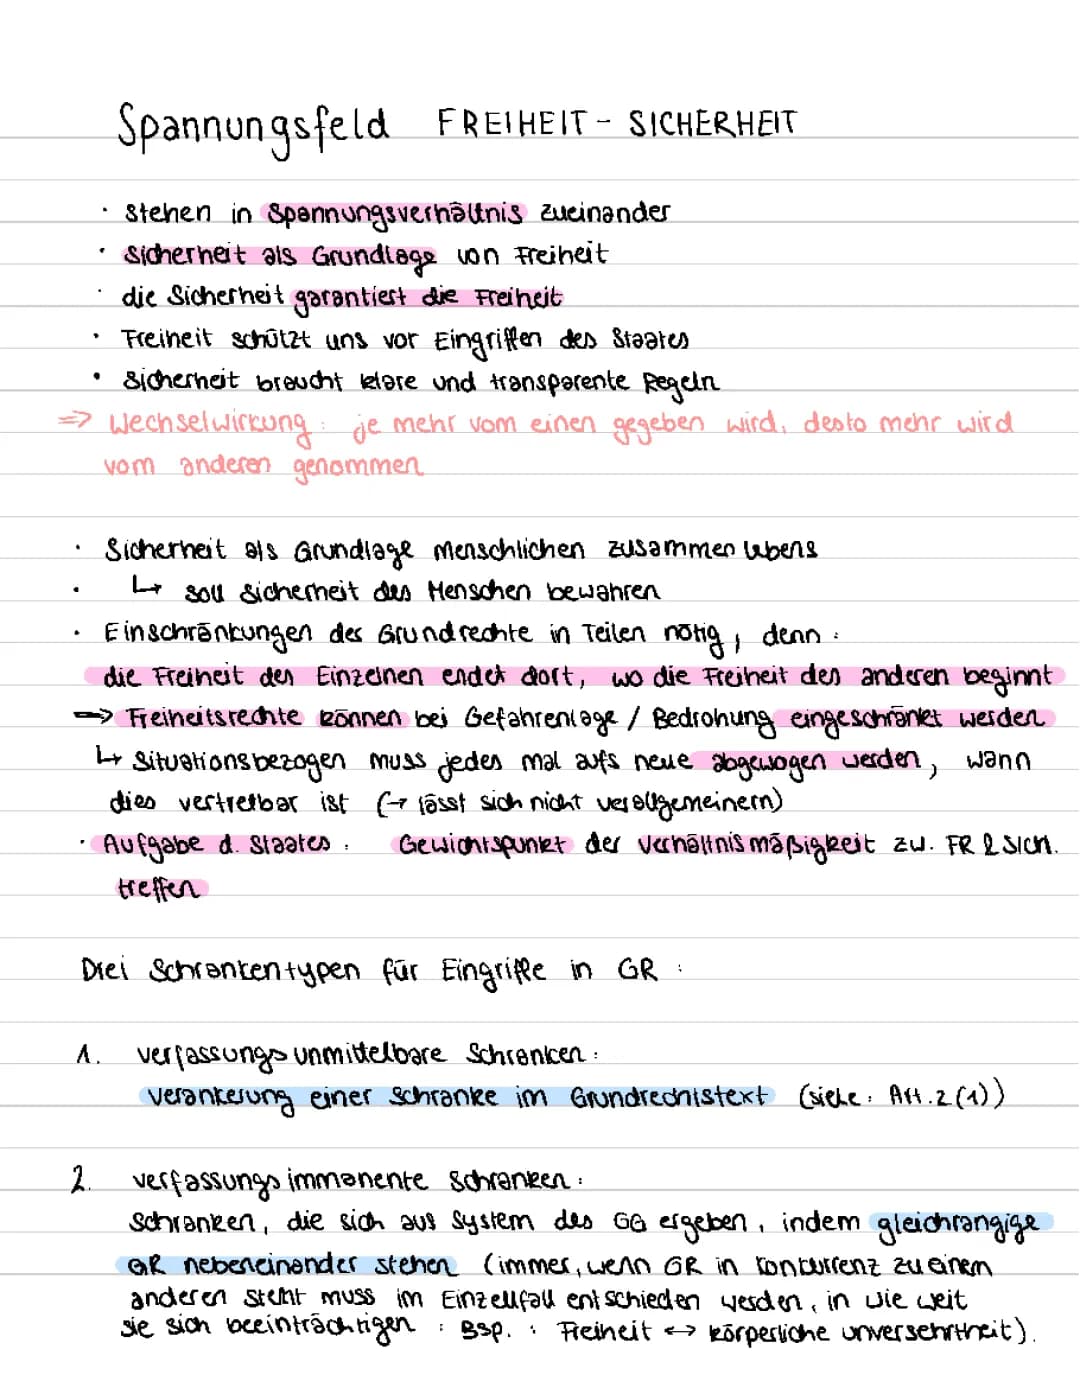 Spannungsfeld FREIHEIT - SICHERHEIT
· stehen in Spannungsverhältnis zueinander
· Sicherheit als Grundlage von Freiheit
· die Sicherheit garantiert die Freiheit
· Freiheit schützt uns vor Eingriffen des Staates
· Sicherheit braucht klare und transparente Regeln
=> Wechselwirkung: je mehr vom einen gegeben wird, desto mehr wird
vom anderen genommen
· Sicherheit als Grundlage menschlichen zusammen lebens
· ↳ soll Sicherheit des Menschen bewahren
· Einschränkungen des Grundrechte in Teilen nötig, denn:
die Freiheit des Einzelnen endet dort, wo die Freiheit des anderen beginnt
=> Freiheitsrechte können bei Gefahrenlage / Bedrohung eingeschränkt werden
↳ Situationsbezogen muss jedes mal aufs neue abgewogen werden, wann
dies vertretbar ist (→ lässt sich nicht verallgemeinern)
· Aufgabe d. Staates: Gewichtspunkt der Verhältnismäßigkeit zw. FR & Sich.
treffen
Drei Schrankentypen für Eingriffe in GR:
1. verfassungsunmittelbare Schranken:
Verankerung einer Schranke im Grundrechtstext (siehe: Art. 2 (1))
2. verfassungsimmanente Schranken:
Schranken, die sich aus System des GG ergeben, indem gleichrangige
GR nebeneinander stehen (immer, wenn GR in Konkurrenz zu einem
anderen steht muss im Einzelfall entschieden werden, in wie weit
sie sich beeinträchtigen: Bsp.: Freiheit ↔ körperliche unversehrtheit).